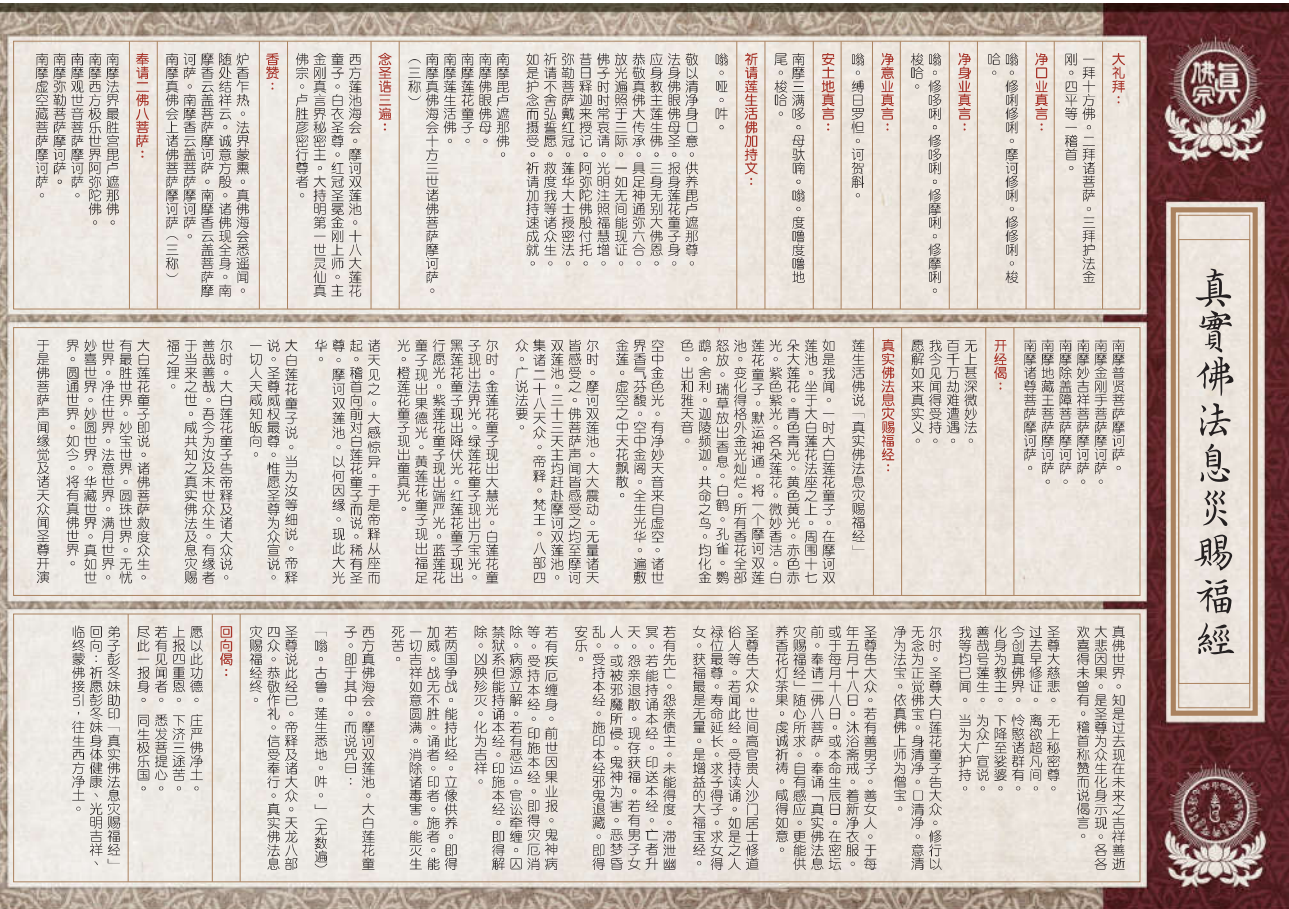 真佛宗
真實佛法息災賜福經
大礼拜：
一拜十方佛。二拜诸菩萨。三拜护法金
刚。四平等一稽首。
净口业真言：
嗡。修唎修唎。摩诃修唎。修修唎。梭
哈。
净身业真言：
嗡。修哆唎。修哆唎。修摩唎。修摩唎。
梭哈。
净意业真言：
嗡。缚日罗怛。诃贺斛。
安土地真言：
南摩三满哆。母驮喃。嗡。度噜度噜地
尾。梭哈。
祈请莲生活佛加持文：
嗡。哑。吽。
敬以清净身口意。供养毘卢遮那尊。
法身佛眼佛母圣。报身莲花童子身。
应身教主莲生佛。三身无别大佛恩。
恭敬真佛大传承。具足神通弥六合。
放光遍照于三际。一如无间能现证。
佛子时时常哀请。光明注照福慧增。
昔日释迦来授记。阿弥陀佛殷付托。
弥勒菩萨戴红冠。莲华大士授密法。
祈请不舍弘誓愿。救度我等诸众生。
如是护念而摄受。祈请加持速成就。
南摩毘卢遮那佛。
南摩佛眼佛母。
南摩莲花童子。
南摩莲生活佛。
南摩真佛海会十方三世诸佛菩萨摩诃萨。
（三称）
念圣诰三遍：
西方莲池海会。摩诃双莲池。十八大莲花
童子。白衣圣尊。红冠圣冕金刚上师。主
金刚真言界秘密主。大持明第一世灵仙真
佛宗。卢胜彦密行尊者。
香赞：
炉香乍热。法界蒙熏。真佛海会悉遥闻。
随处结祥云。诚意方殷。诸佛现全身。南
摩香云盖菩萨摩诃萨。南摩香云盖菩萨摩
诃萨。南摩香云盖菩萨摩诃萨。
南摩真佛会上诸佛菩萨摩诃萨（三称）
奉请二佛八菩萨：
南摩法界最胜宫毘卢遮那佛。
南摩西方极乐世界阿弥陀佛。
南摩观世音菩萨摩诃萨。
南摩弥勒菩萨摩诃萨。
南摩虚空藏菩萨摩诃萨。
南摩普贤菩萨摩诃萨。
南摩金刚手菩萨摩诃萨。
南摩妙吉祥菩萨摩诃萨。
南摩除盖障菩萨摩诃萨。
南摩地藏王菩萨摩诃萨。
南摩诸尊菩萨摩诃萨。
开经偈：
无上甚深微妙法。
百千万劫难遭遇。
我今见闻得受持。
愿解如来真实义。
真实佛法息灾赐福经：
莲生活佛说「真实佛法息灾赐福经」
如是我闻。一时大白莲花童子。在摩诃双
莲池。坐于大白莲花法座之上。周围十七
朵大莲花。青色青光。黄色黄光。赤色赤
光。紫色紫光。各朵莲花。微妙香洁。白
莲花童子。默运神通。将一个摩诃双莲
池。变化得格外金光灿烂。所有香花全部
怒放。瑞草放出香息。白鹤。孔雀。鹦
鹉。舍利。迦陵频迦。共命之鸟。均化金
色。出和雅天音。
空中金色光。有净妙天音来自虚空。诸世
界香气芬馥。空中金阁。全生光华。遍敷
金莲。虚空之中天花飘散。
尔时。摩诃双莲池。大大震动。无量诸天
皆感受之。佛菩萨声闻皆感受之均至摩诃
双莲池。三十三天主均赶赴摩诃双莲池。
集诸二十八天众。帝释。梵王。八部四
众。广说法要。
尔时。金莲花童子现出大慧光。白莲花童
子现出法界光。绿莲花童子现出万宝光。
黑莲花童子现出降伏光。红莲花童子现出
行愿光。紫莲花童子现出端严光。蓝莲花
童子现出果德光。黄莲花童子现出福足
光。橙莲花童子现出童真光。
诸天见之。大感惊异。于是帝释从座而
起。稽首向前对白莲花童子而说。稀有圣
尊。摩诃双莲池。以何因缘。现此大光
华。
大白莲花童子说。当为汝等细说。帝释
说。圣尊威权最尊。惟愿圣尊为众宣说。
一切人天咸知皈向。
尔时。大白莲花童子告帝释及诸大众说。
善哉善哉。吾今为汝及末世众生。有缘者
于当来之世。咸共知之真实佛法及息灾赐
福之理。
大白莲花童子即说。诸佛菩萨救度众生。
有最胜世界。妙宝世界。圆珠世界。无忧
世界。净住世界。法意世界。满月世界。
妙喜世界。妙圆世界。华藏世界。真如世
界。圆通世界。如今。将有真佛世界。
于是佛菩萨声闻缘觉及诸天众闻圣尊开演
真佛世界。知是过去现在未来之吉祥善逝
大悲因果。是圣尊为众生化身示现。各各
欢喜得未曾有。稽首称赞而说偈言。
圣尊大慈悲。无上秘密尊。
过去早修证。离欲超凡间。
今创真佛界。怜愍诸群有。
化身为教主。下降至娑婆。
善哉号莲生。为众广宣说。
我等均已闻。当为大护持。
尔时。圣尊大白莲花童子告大众。修行以
无念为正觉佛宝。身清净。口清净。意清
净为法宝。依真佛上师为僧宝。
圣尊告大众。若有善男子。善女人。于每
年五月十八日。沐浴斋戒。着新净衣服。
或于每月十八日。或本命生辰日。在密坛
前。奉请二佛八菩萨。奉诵「真实佛法息
灾赐福经」随心所求。自有感应。更能供
养香花灯茶果。虔诚祈祷。咸得如意。
圣尊告大众。世间高官贵人沙门居士修道
俗人等。若闻此经。受持读诵。如是之人
禄位最尊。寿命延长。求子得子。求女得
女。获福最是无量。是增益的大福宝经。
若有先亡。怨亲债主。未能得度。滞泄幽
冥。若能持诵本经。印送本经。亡者升
天。怨亲退散。现存获福。若有男子女
人。或被邪魔所侵。鬼神为害。恶梦昏
乱。受持本经。施印本经邪鬼退藏。即得
安乐。
若有疾厄缠身。前世因果业报。鬼神病
等。受持本经。印施本经。即得灾厄消
除。病源立解。若有恶运。官讼牵缠。囚
禁狱系但能持诵本经。印施本经。即得解
除。凶殃殄灭。化为吉祥。
若两国争战。能持此经。立像供养。即得
加威。战无不胜。诵者。印者。施者。能
一切吉祥如意圆满。消除诸毒害。能灭生
死苦。
西方真佛海会。摩诃双莲池。大白莲花童
子。即于其中。而说咒曰：
「嗡。古鲁。莲生悉地。吽。」（无数遍）
圣尊说此经已。帝释及诸大众。天龙八部
四众。恭敬作礼。信受奉行。真实佛法息
灾赐福经终。
回向偈：
愿以此功德。庄严佛净土。
上报四重恩。下济三途苦。
若有见闻者。悉发菩提心。
尽此一报身。同生极乐国。
弟子彭冬妹助印「真实佛法息灾赐福经」
回向：祈愿彭冬妹身体健康、光明吉祥、
临终蒙佛接引，往生西方净土。